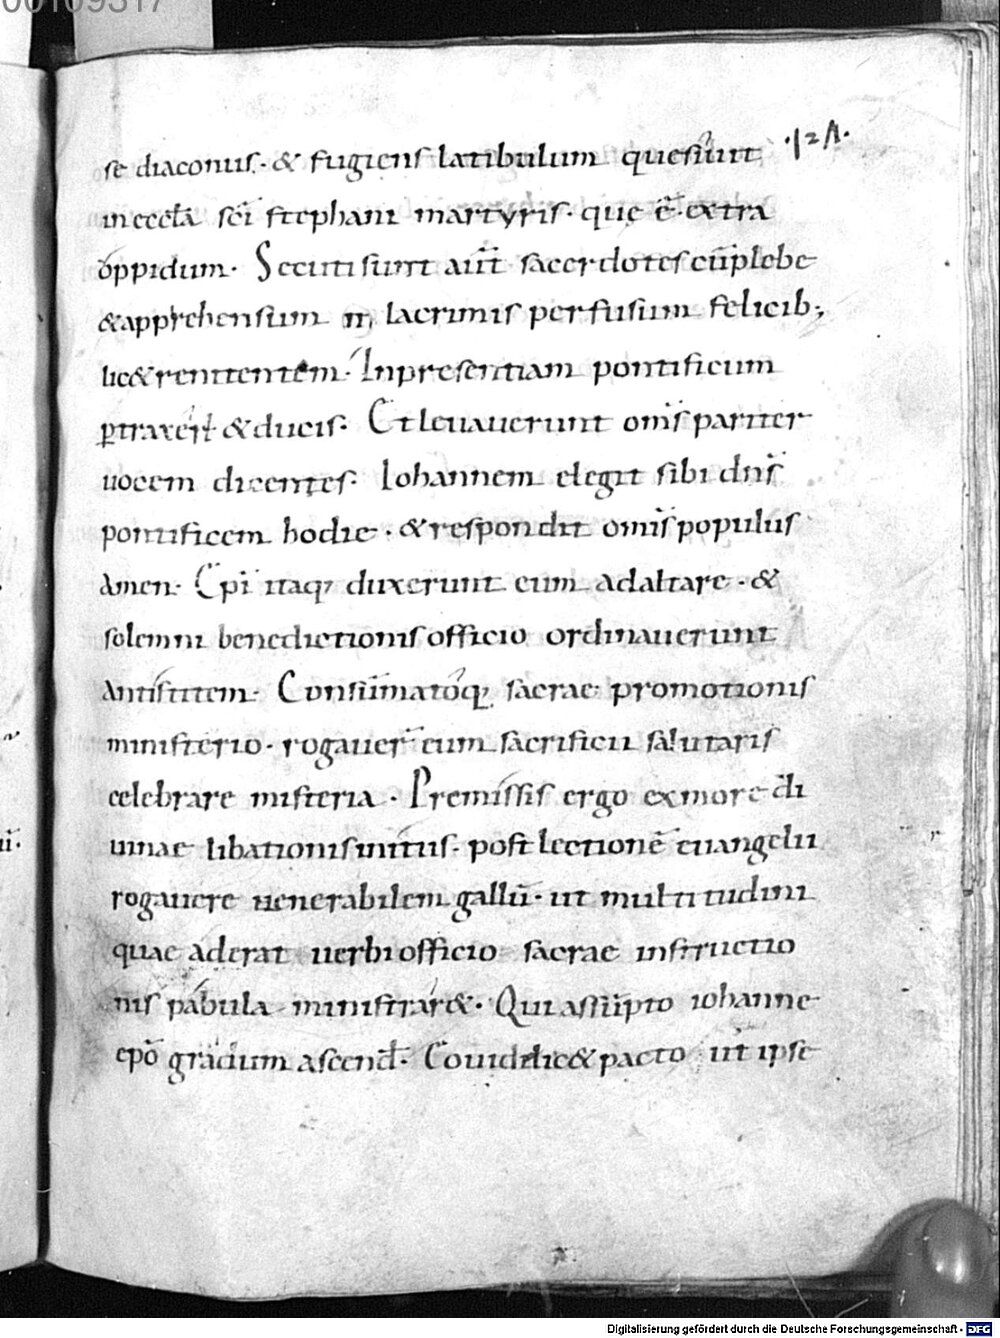 00109317
·124·
se diaconus· & fugiens latibulum quesiuit
in eccła sc̄i stephani martyris· quę ē· extra
oppidum· Secuti sunt aūt sacerdotes cū plebe
& apprehensum lacrimis perfusum felicib;
lic& renitentem· In presentiam pontificum
ꝑtraxer̄t & ducis· Et leuauerunt om̄s pariter
uocem dicentes· Iohannem elegit sibi dn̄s
pontificem hodie· & respondit om̄s populus
Amen· Ep̄i itaq; duxerunt eum ad altare· &
solemni benedictionis officio ordinauerunt
Antistitem· Consūmatoq; sacrae promotionis
ministerio· rogauer̄ eum sacrificii salutaris
celebrare misteria· Premissis ergo ex more di
uinae libationis initiis· post lectionē euangelii
rogauere uenerabilem gallū· ut multitudini
quae aderat uerbi officio sacrae instructio
nis pabula ministrar&· Qui assūpto iohanne
ep̄o gradum ascend̄· Eo uidelic& pacto ut ipse
Digitalisierung gefördert durch die Deutsche Forschungsgemeinschaft - DFG